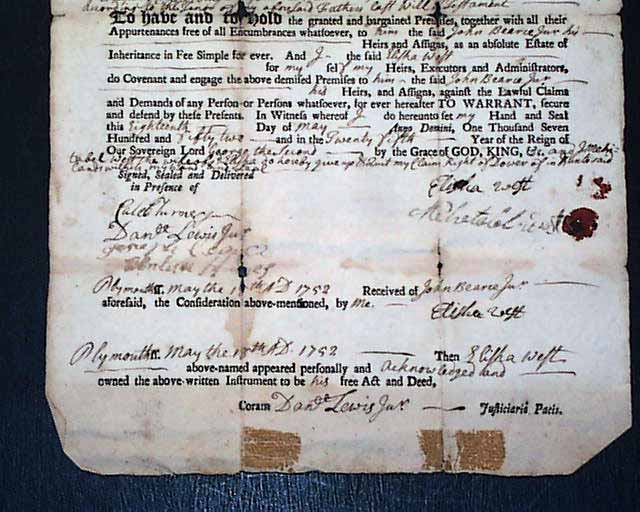 my aforesaid Fathers Last Will & Testament
To have and to hold the granted and bargained Premises, together with all their
Appurtenances free of all Encumbrances whatsoever, to him the said John Bearce Jur his
Heirs and Assigns, as an absolute Estate of
Inheritance in Fee Simple for ever. And I the said Elisha West
for my self my Heirs, Executors and Administrators,
do Covenant and engage the above demised Premises to him the said John Bearce Jur
his Heirs, and Assigns, against the Lawful Claims
and Demands of any Person or Persons whatsoever, for ever hereafter TO WARRANT, secure
and defend by these Presents. In Witness whereof I do hereunto set my Hand and Seal
this Eighteenth Day of May Anno Domini, One Thousand Seven
Hundred and Fifty two and in the Twenty Fifth Year of the Reign of
Our Sovereign Lord George the Second by the Grace of GOD, KING, &c. and I Mehi-
tabel West the wife of Elisha do hereby give up & Quit my Claim Right of Dower of in
Signed, Sealed and Delivered
in Presence of
Elisha West
Caleb Turner
Mehetabel West
Danel Lewis Jur
Plymouth ss. May the 18th AD. 1752 Received of John Bearce Jur
aforesaid, the Consideration above-mentioned, by Me.
Elisha West
Plymouth ss. May the 18th AD. 1752 Then Elisha West
above-named appeared personally and Acknowledged and
owned the above-written Instrument to be his free Act and Deed,
Coram Danel Lewis Jur Justiciario Pacis.